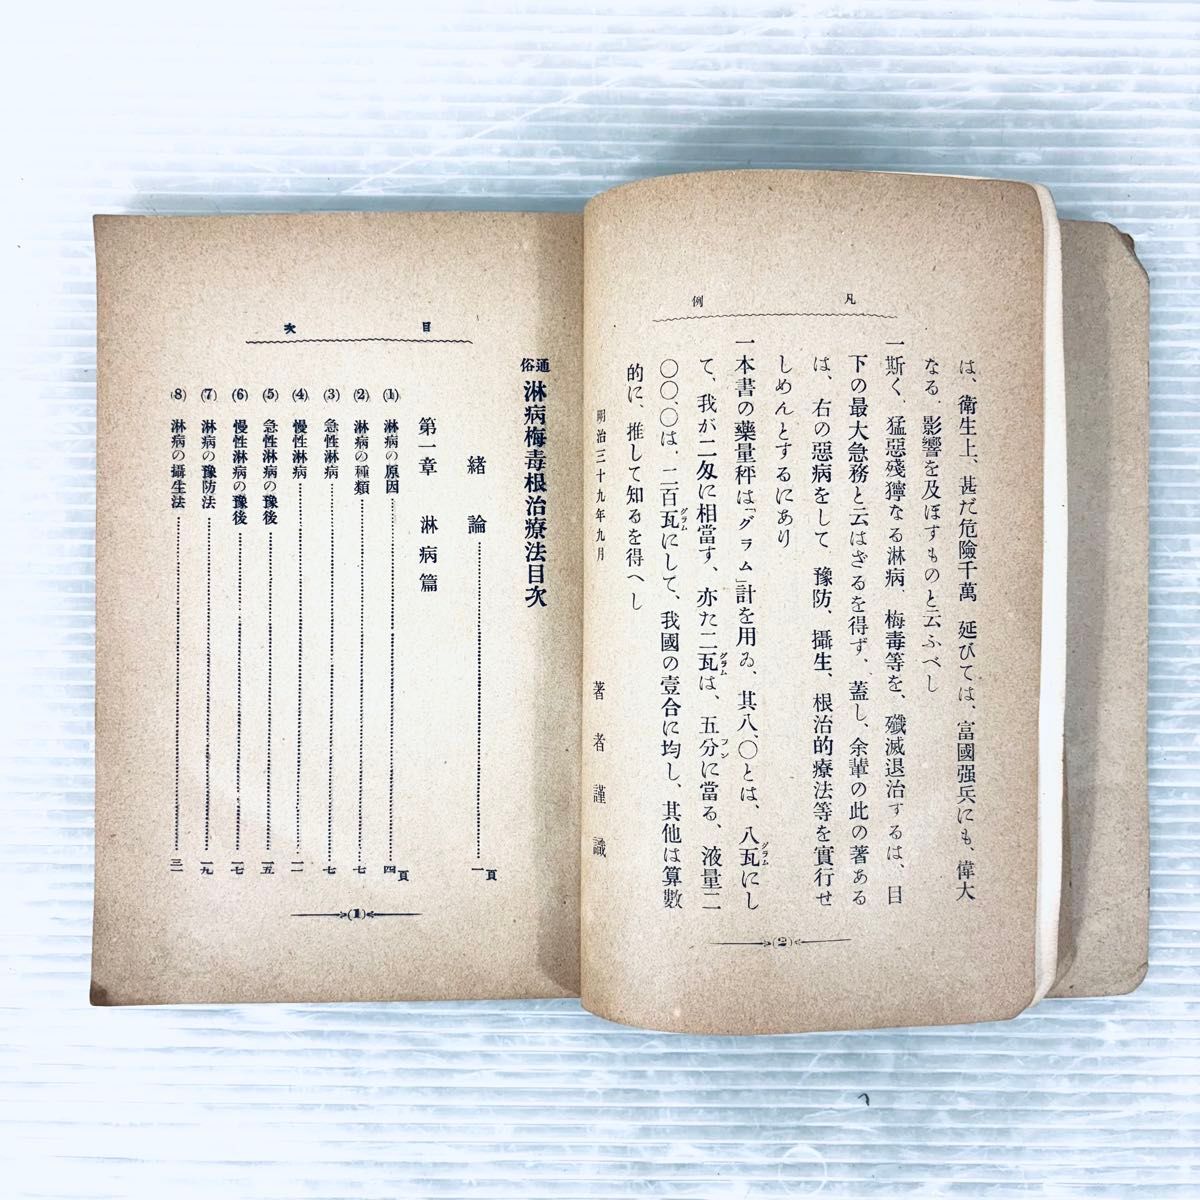 凡例
は、衛生上、甚だ危險千萬 延びては、富國强兵にも、偉大
なる影響を及ぼすものと云ふべし
一斯く、猛惡殘獰なる淋病、梅毒等を、殲滅退治するは、目
下の最大急務と云はざるを得ず、蓋し、余輩の此の著ある
は、右の惡病をして、豫防、攝生、根治的療法等を實行せ
しめんとするにあり
一本書の藥量秤は「グラム」計を用ゐ、其八、〇とは、八瓦にし
グラム
て、我が二匁に相當す、亦た二瓦は、五分に當る、液量二
グラム
フン
〇〇、〇は、二百瓦にして、我國の壹合に均し、其他は算數
グラム
的に、推して知るを得へし
明治三十九年九月
著者謹識
(2)
目次
通俗 淋病梅毒根治療法目次
緒論 一頁
第一章 淋病篇
(1) 淋病の原因 四頁
(2) 淋病の種類 七
(3) 急性淋病 七
(4) 慢性淋病 一一
(5) 急性淋病の豫後 一五
(6) 慢性淋病の豫後 一七
(7) 淋病の豫防法 一九
(8) 淋病の攝生法 三一
(1)